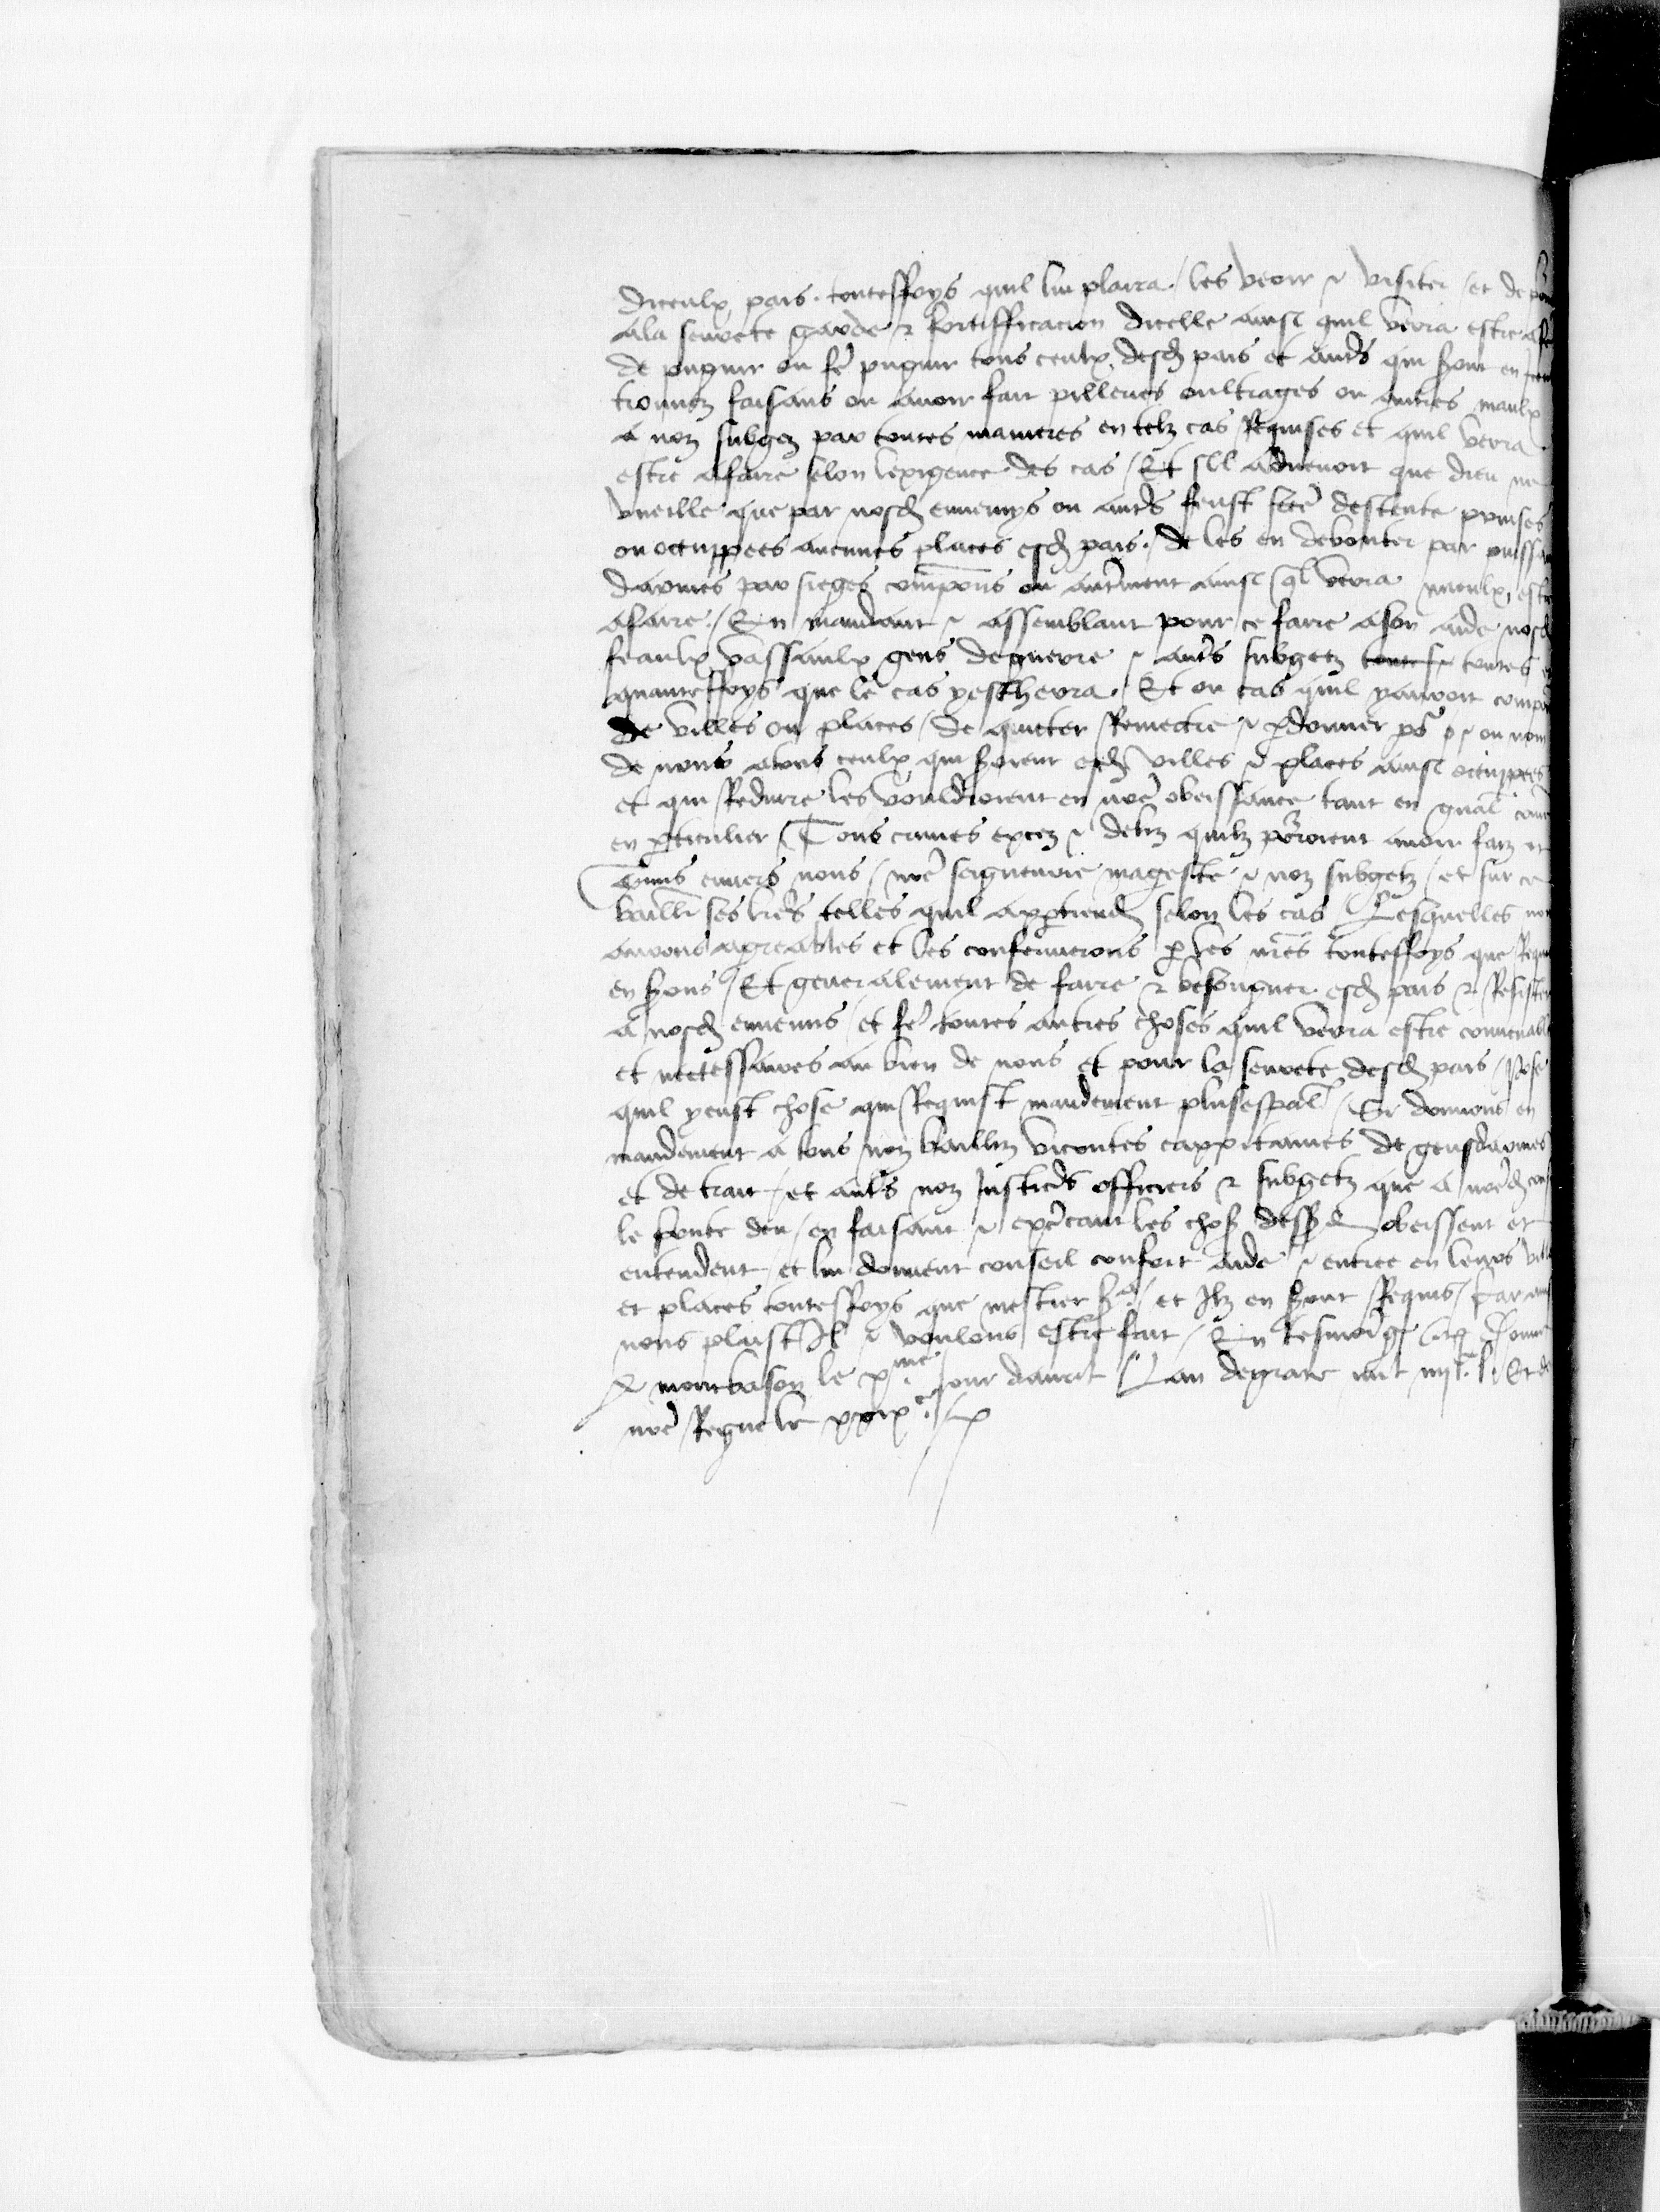 diceulx pais toutesfoys quil lui plaira / les veoir & visiter / et de
ala seurete garde & fortifficacion dicelle ainsi quil verra estre
de pugnir ou fe pugnir tous ceulx desd pais et autrs qui seront en
tionnez faisans ou avoir fait pilleries oultrages ou autres maulx
a noz subgez par toutes manieres en telz cas Requises et quil verra
estre afaire selon lexigence des cas / Et sil advenoit que dieu ne
vueille que par nosd ennemys ou autrs feust fete descente prinses
ou occuppees aucunes places esd pais / de les en debouter par
darmes par sieges composicions ou autrement ainsi ql verra mieulx
afaire / En mandant & assemblant pour ce faire ason aide nosd
feaulx vassaulx gens deguerre & autrs subgetz toutes
quanteffoys que le cas yescherra / Et ou cas quil yauroit
de villes ou places / de quicter Remectre & pdonner
de nous atous ceulx qui seront esd villes & places ainsi occuppees
et qui Reduire les vouldroient en nre obeissance tant en gnal
en pticulier / Tous crimes excez & deliz quilz porroient avoir faiz et
commis envers nous / nre seigneurie mageste & noz subgetz / et sur ce
baill ses lres telles quil apptiendra selon les cas / Lesquelles
aurons agreables et les confermerons p les nres toutesfoys que
en sons / Et generalement de faire & besongner esd pais & Resister
a nosd ennemis / et fe toutes autres choses quil verra estre
et necessaires au bien de nous et pour la seurete desd pais /
quil yeust chose qui Requist mandement plusespal / Si donnons en
mandement a tous noz bailliz vicontes cappitaines de gensdarmes
et de trait / et autrs noz Justiciers officiers & subgetz que a nred
le conte / en faisant & exercant les choses dessusd obeissent et
entendent / et lui donnent conseil confort aide & entree en leurs
et places toutesfoys que mestier sera / et Ilz en seront Requis / Car
nous plaist Il & voulons estre fait / En tesmoing
a montbason le xme Jour davril / Lan degrace mil iiijc l / Et de
nre Regne le xxixe